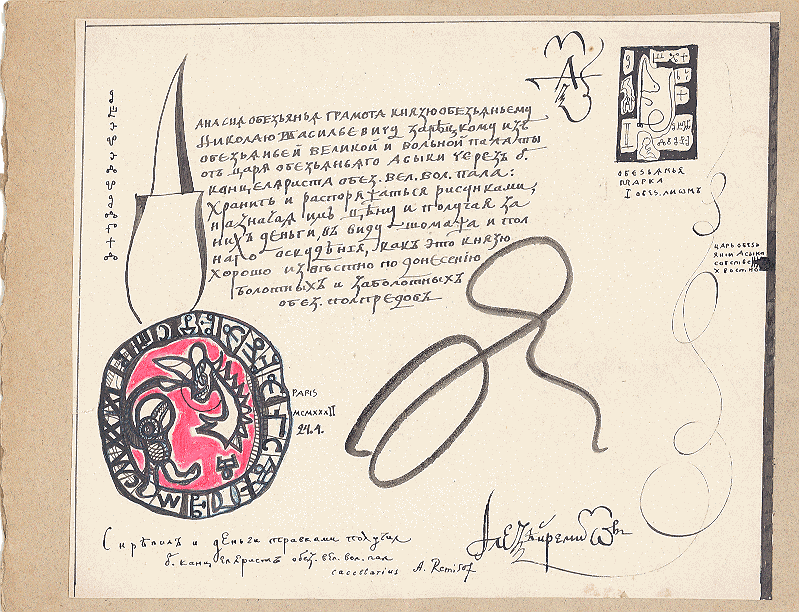 ОБЕЗЬЯНЬЯ ГРАМОТА КНЯЗЮ ОБЕЗЬЯНЬЕМУ
НИКОЛАЮ ВАСИЛЬЕВИЧУ ЗАРѢЦКОМУ ИЗЪ
ОБЕЗЬЯНЬЕЙ ВЕЛИКОЙ И ВОЛЬНОЙ ПАЛАТЫ
ОТЪ ЦАРЯ ОБЕЗЬЯНЬЯГО АСЫКИ ЧЕРЕЗЪ б.
КАНЦЕЛЯРИСТА ОБЕЗ. ВЕЛ. ВОЛ. ПАЛА:
Хранить и распоряжаться рисунками,
назначая имъ цѣну и получая за
нихъ деньги, въ виду и пол
наго оскудѣнія, какъ это князю
хорошо извѣстно по донесенію
болотныхъ и заболотныхъ
обез. полпредовъ
ОБЕЗЬЯНЬЯ
МАРКА
I ОБЕЗ.
ЦАРЬ ОБЕЗЬ
ЯНИЙ АСЫКА
СОБСТВЕ
ХВОСТНО
PARIS
MCMXXXII
24.4.
Скрѣпилъ и деньги травками получил
б. канцеляристъ обез. вел. вол. пал
cacellarius A. Remisof